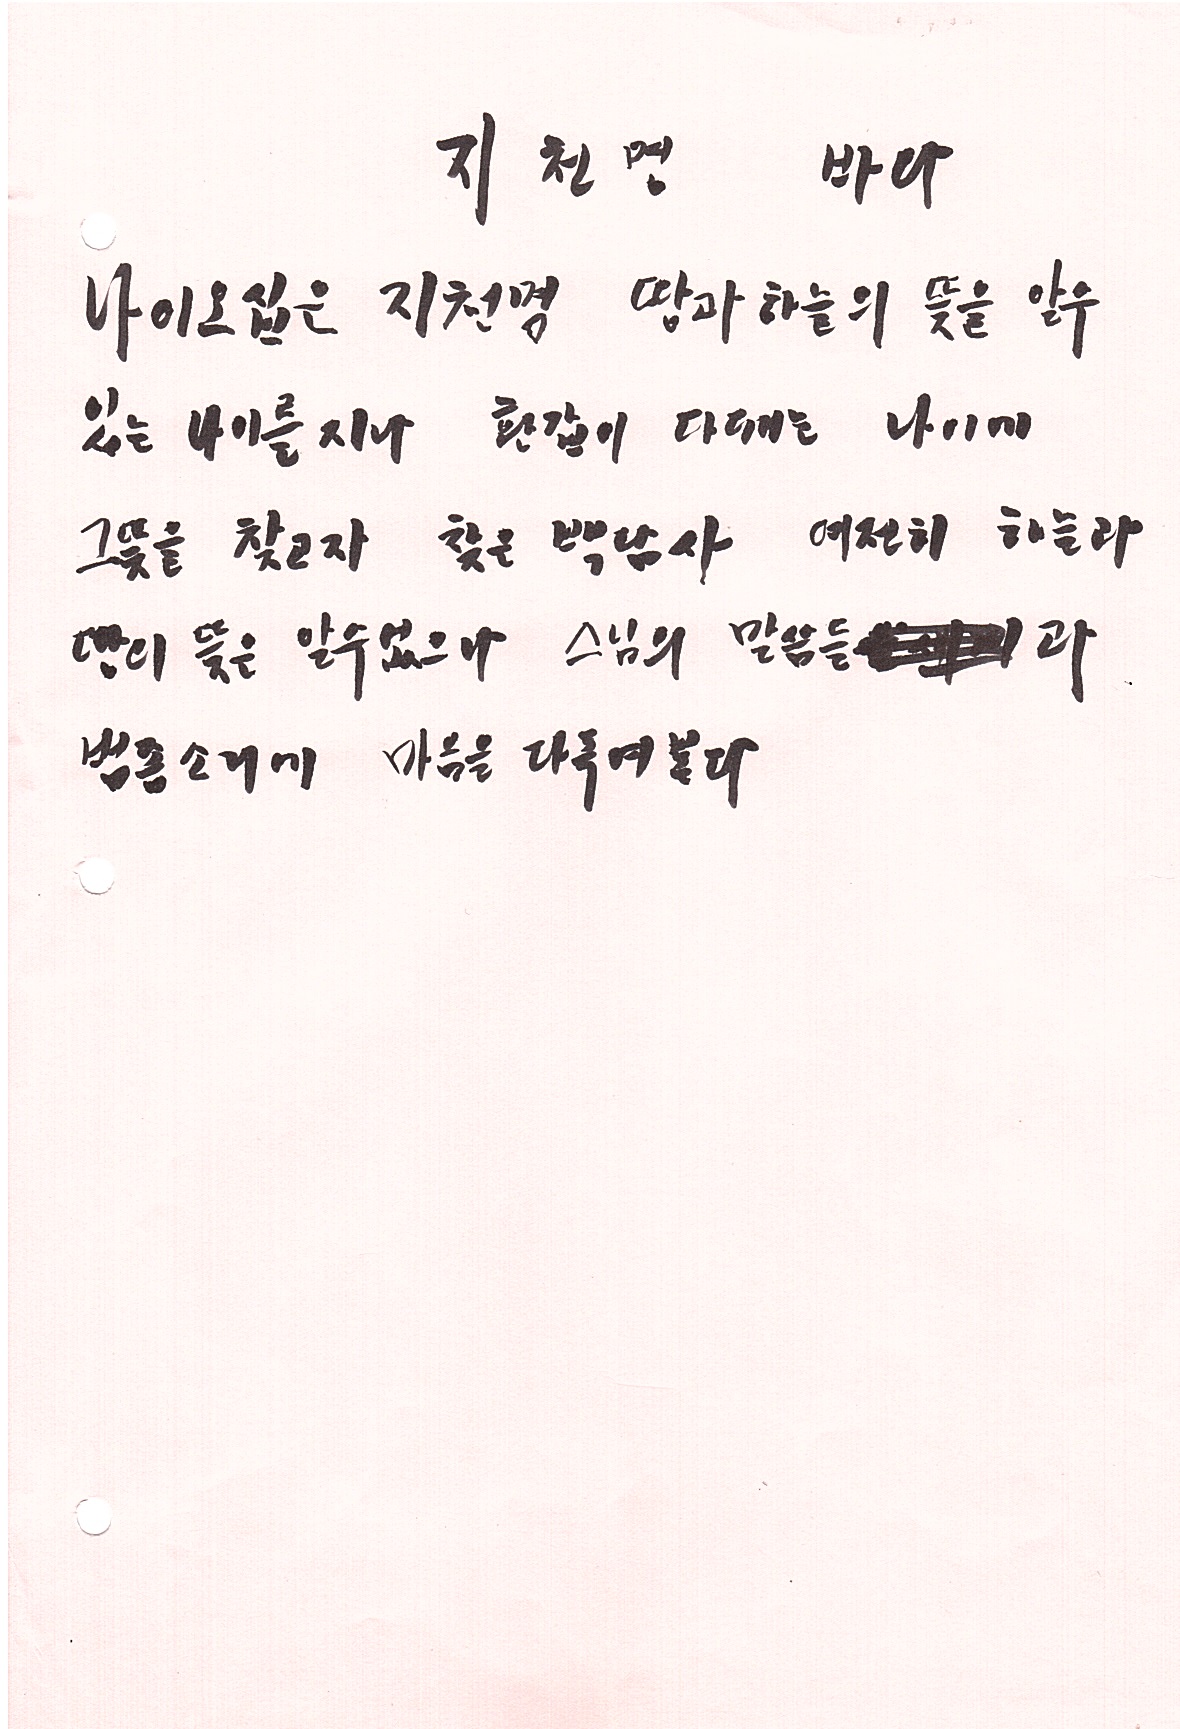 지천명 바다
나이오십은 지천명 땅과하늘의 뜻을 알수
있는 나이를지나 환갑이 다돼는 나이에
그뜻을 찾고자 찾은 백담사 여전히 하늘과
땅의 뜻은 알수없으나 스님의 말씀들과
범종소리에 마음을 다독여본다